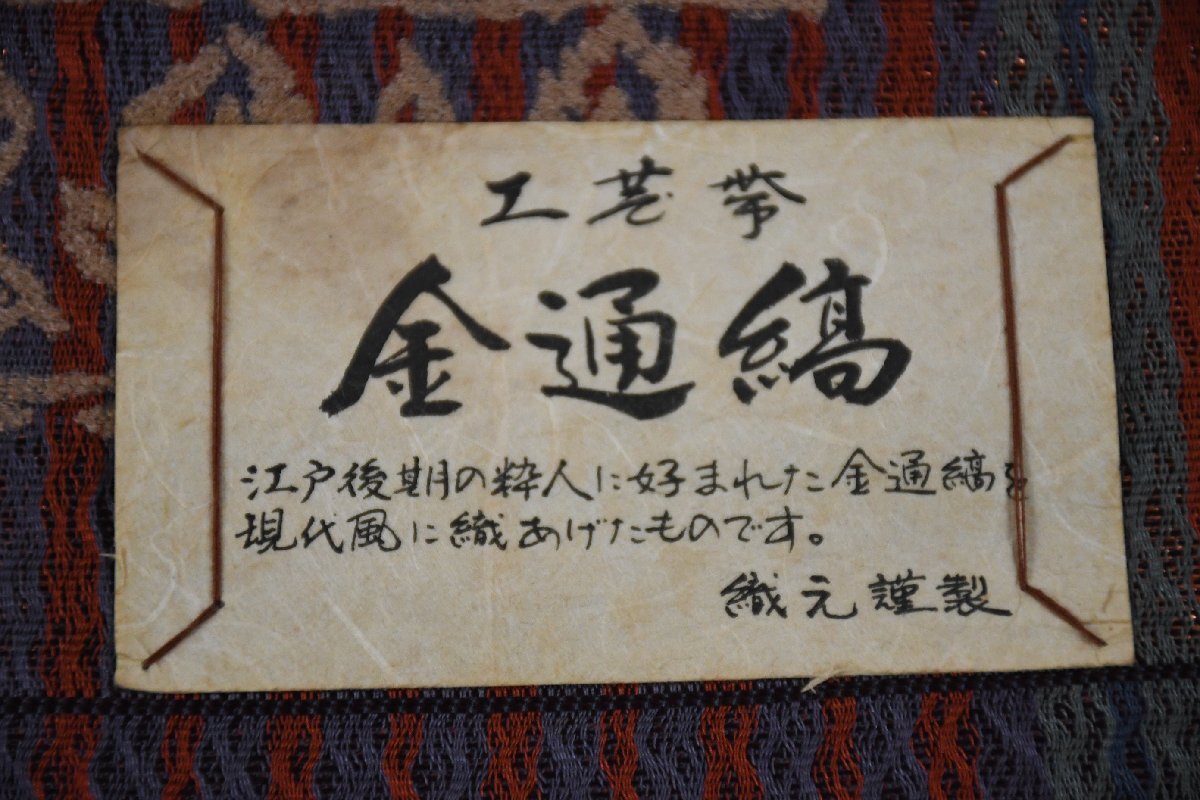 工芸帯
金通縞
江戸後期の粋人に好まれた金通縞を
現代風に織あげたものです。
織元謹製